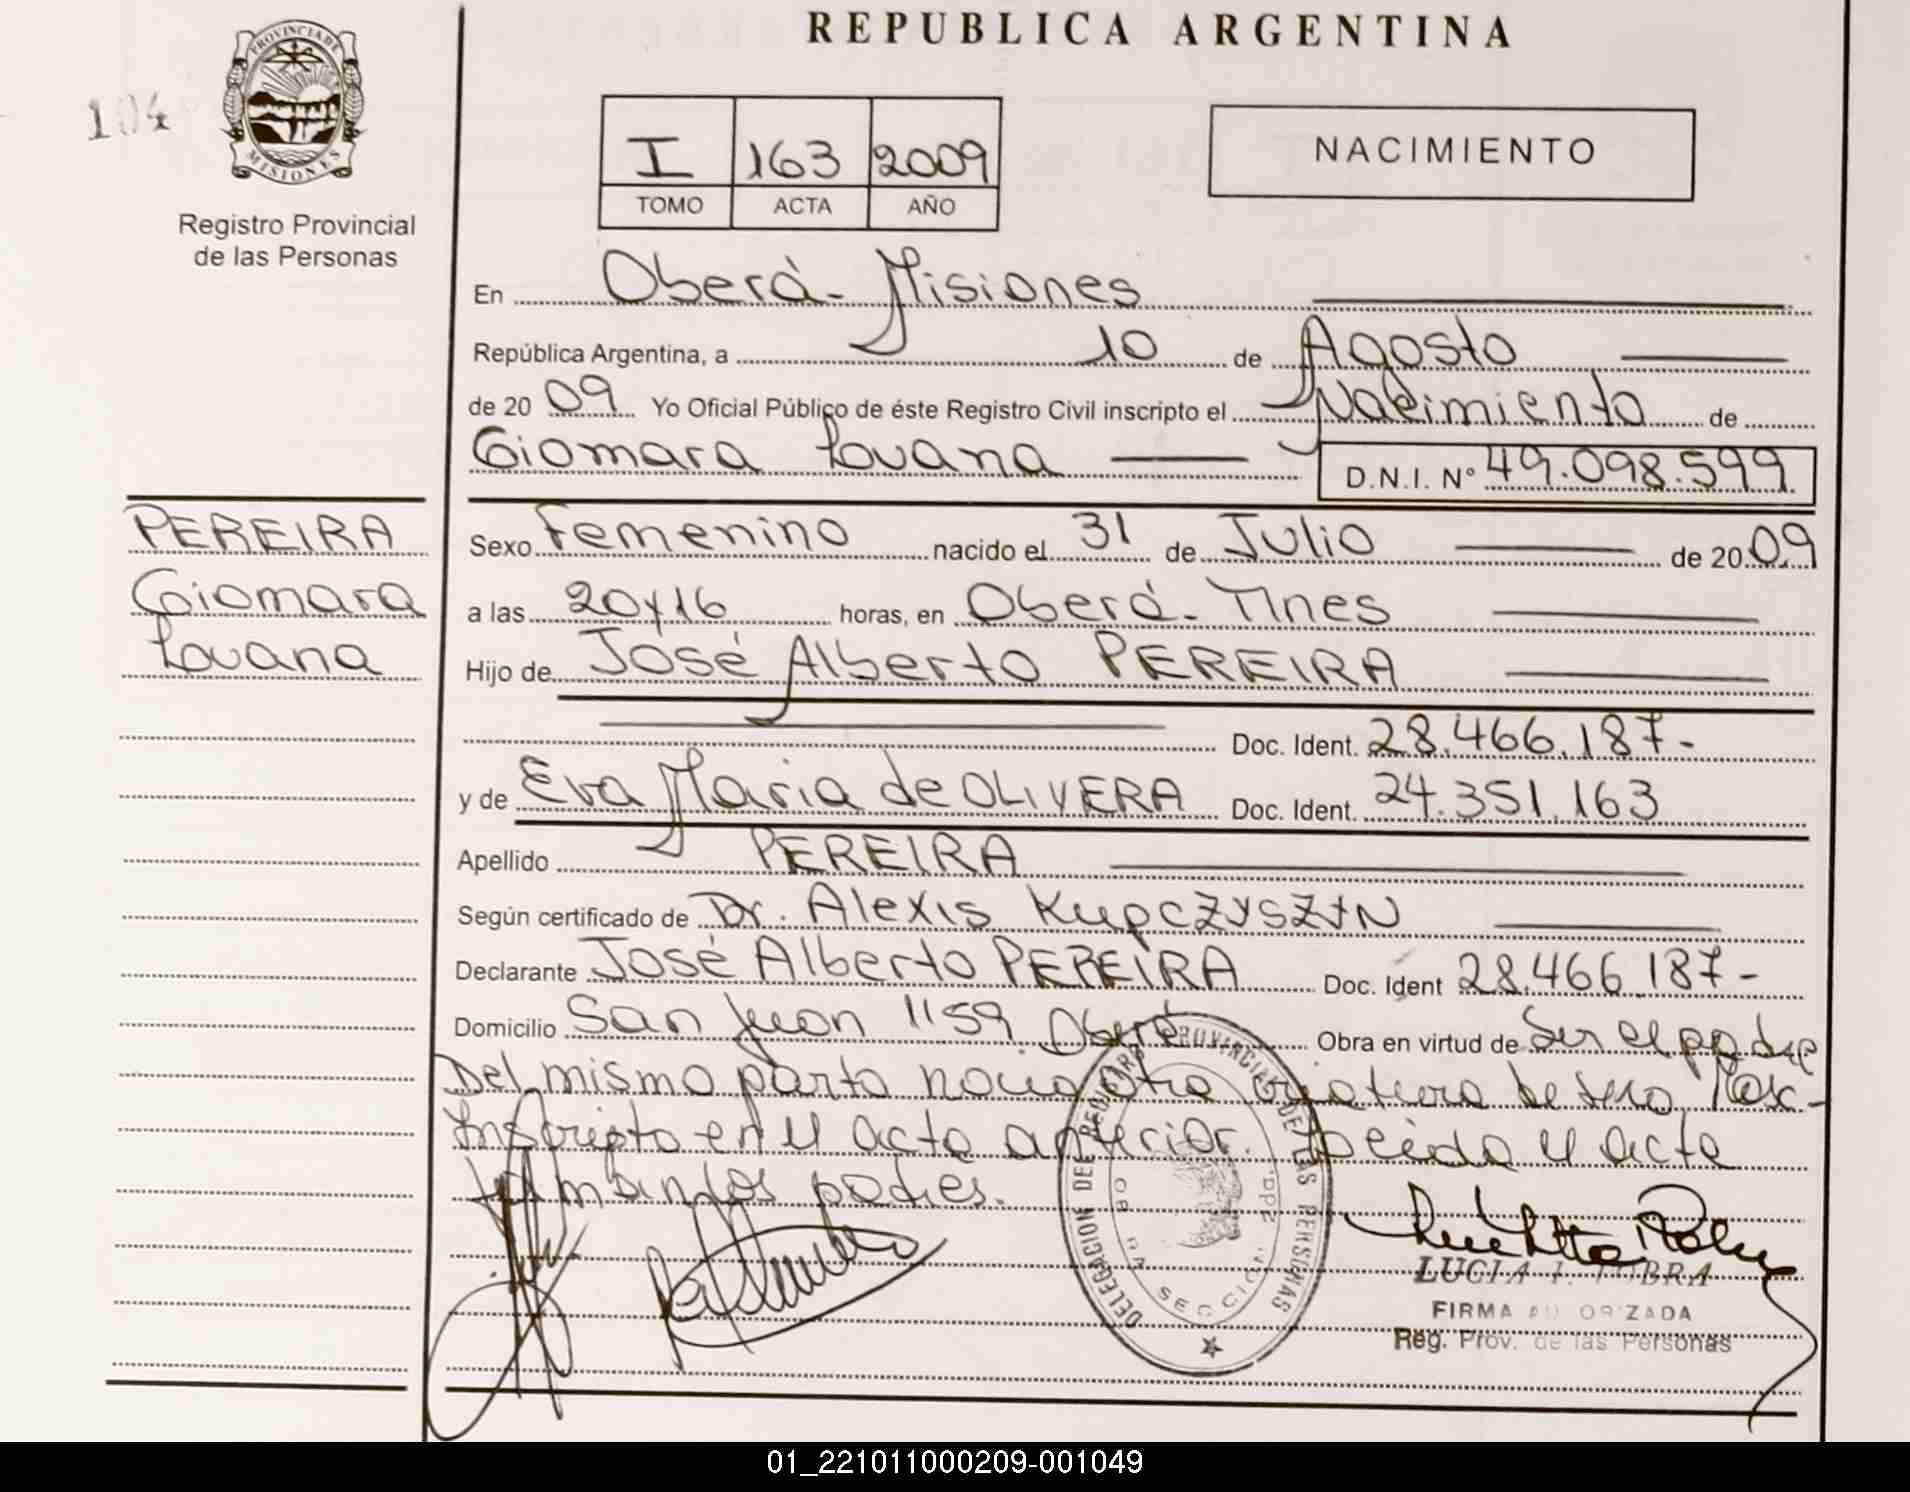 REPUBLICA ARGENTINA
PROVINCIA DE
MISIONES
104
Registro Provincial
de las Personas
I 163 2009
TOMO ACTA AÑO
NACIMIENTO
En Oberá- Misiones
República Argentina, a 10 de Agosto
de 2009 Yo Oficial Público de éste Registro Civil inscripto el Nacimiento de
Giomara Lovana
D.N.I. Nº 49.098.599
PEREIRA
Giomara
Lovana
Sexo Femenino nacido el 31 de Julio de 2009
a las 20y16 horas, en Oberá- Mnes
Hijo de José Alberto PEREIRA
Doc. Ident. 28.466.187-
y de Eva Maria de OLIVERA Doc. Ident. 24.351.163
Apellido PEREIRA
Según certificado de Dr. Alexis KupcZySZyN
Declarante José Alberto PEREIRA Doc. Ident 28.466.187-
Domicilio San Juan 1159 Oberá Obra en virtud de Ser el padre
Del mismo parto nació otra criatura de sexo Masc-
Inscripto en el acta anterior. Leida el acta
firman los padres.
DELEGACION DEL REGISTRO PROVINCIAL DE LAS PERSONAS
SECCION
LUCIA I. LOBRA
FIRMA AUTORIZADA
Reg. Prov. de las Personas
01_221011000209-001049